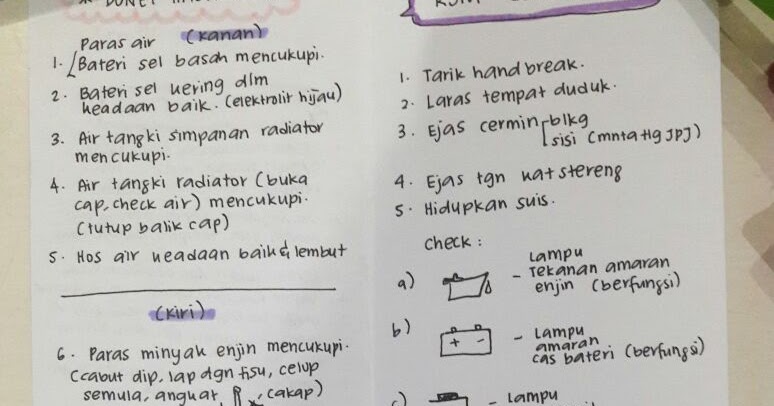 (kanan)
Paras air
1. Bateri sel basah mencukupi.
2. Bateri sel kering dlm
keadaan baik. (elektrolit hijau)
3. Air tangki simpanan radiator
mencukupi.
4. Air tangki radiator (buka
cap, check air) mencukupi.
(tutup balik cap)
5. Hos air keadaan baik & lembut
(kiri)
6. Paras minyak enjin mencukupi.
(cabut dip, lap dgn tisu, celup
semula, angkat, cakap)
1. Tarik handbreak.
2. Laras tempat duduk.
3. Ejas cermin blkg
sisi (mnta tlg JPJ)
4. Ejas tgn kat stereng
5. Hidupkan suis.
check :
a) - Lampu
tekanan amaran
enjin (berfungsi)
b) + - - Lampu
amaran
cas bateri (berfungsi)
c) - Lampu